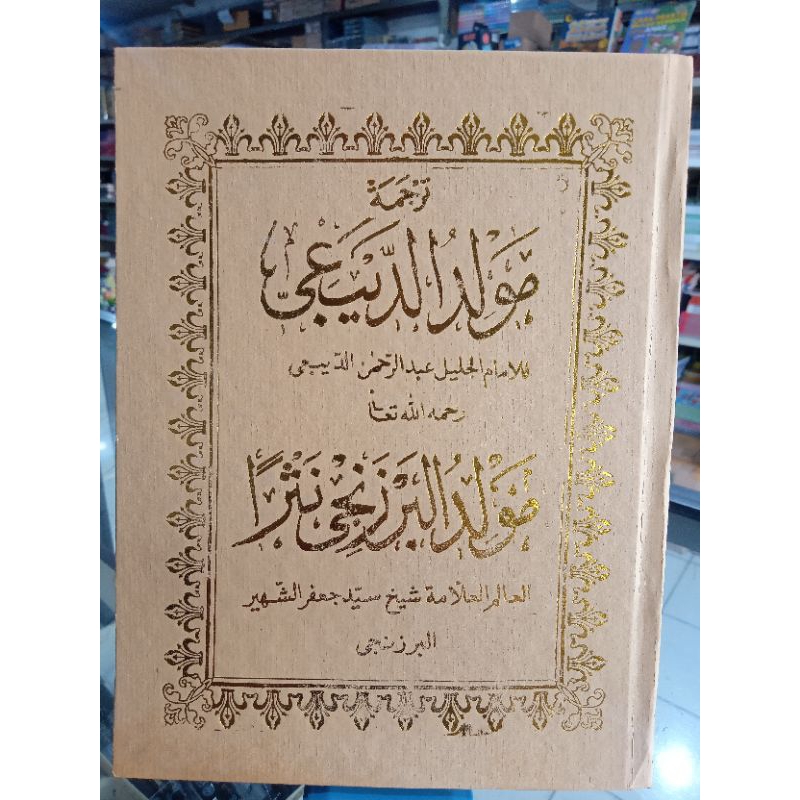 ترجمة
مَولِدُ الدِّيبَاعِيّ
للامام الجليل عبد الرحمن الديبعى
رحمه الله تعالى
مَولِدُ البَرْزَنْجِى نَثْرًا
العالم العلّامة شيخ سيّد جعفر الشّهير
البرزنجى